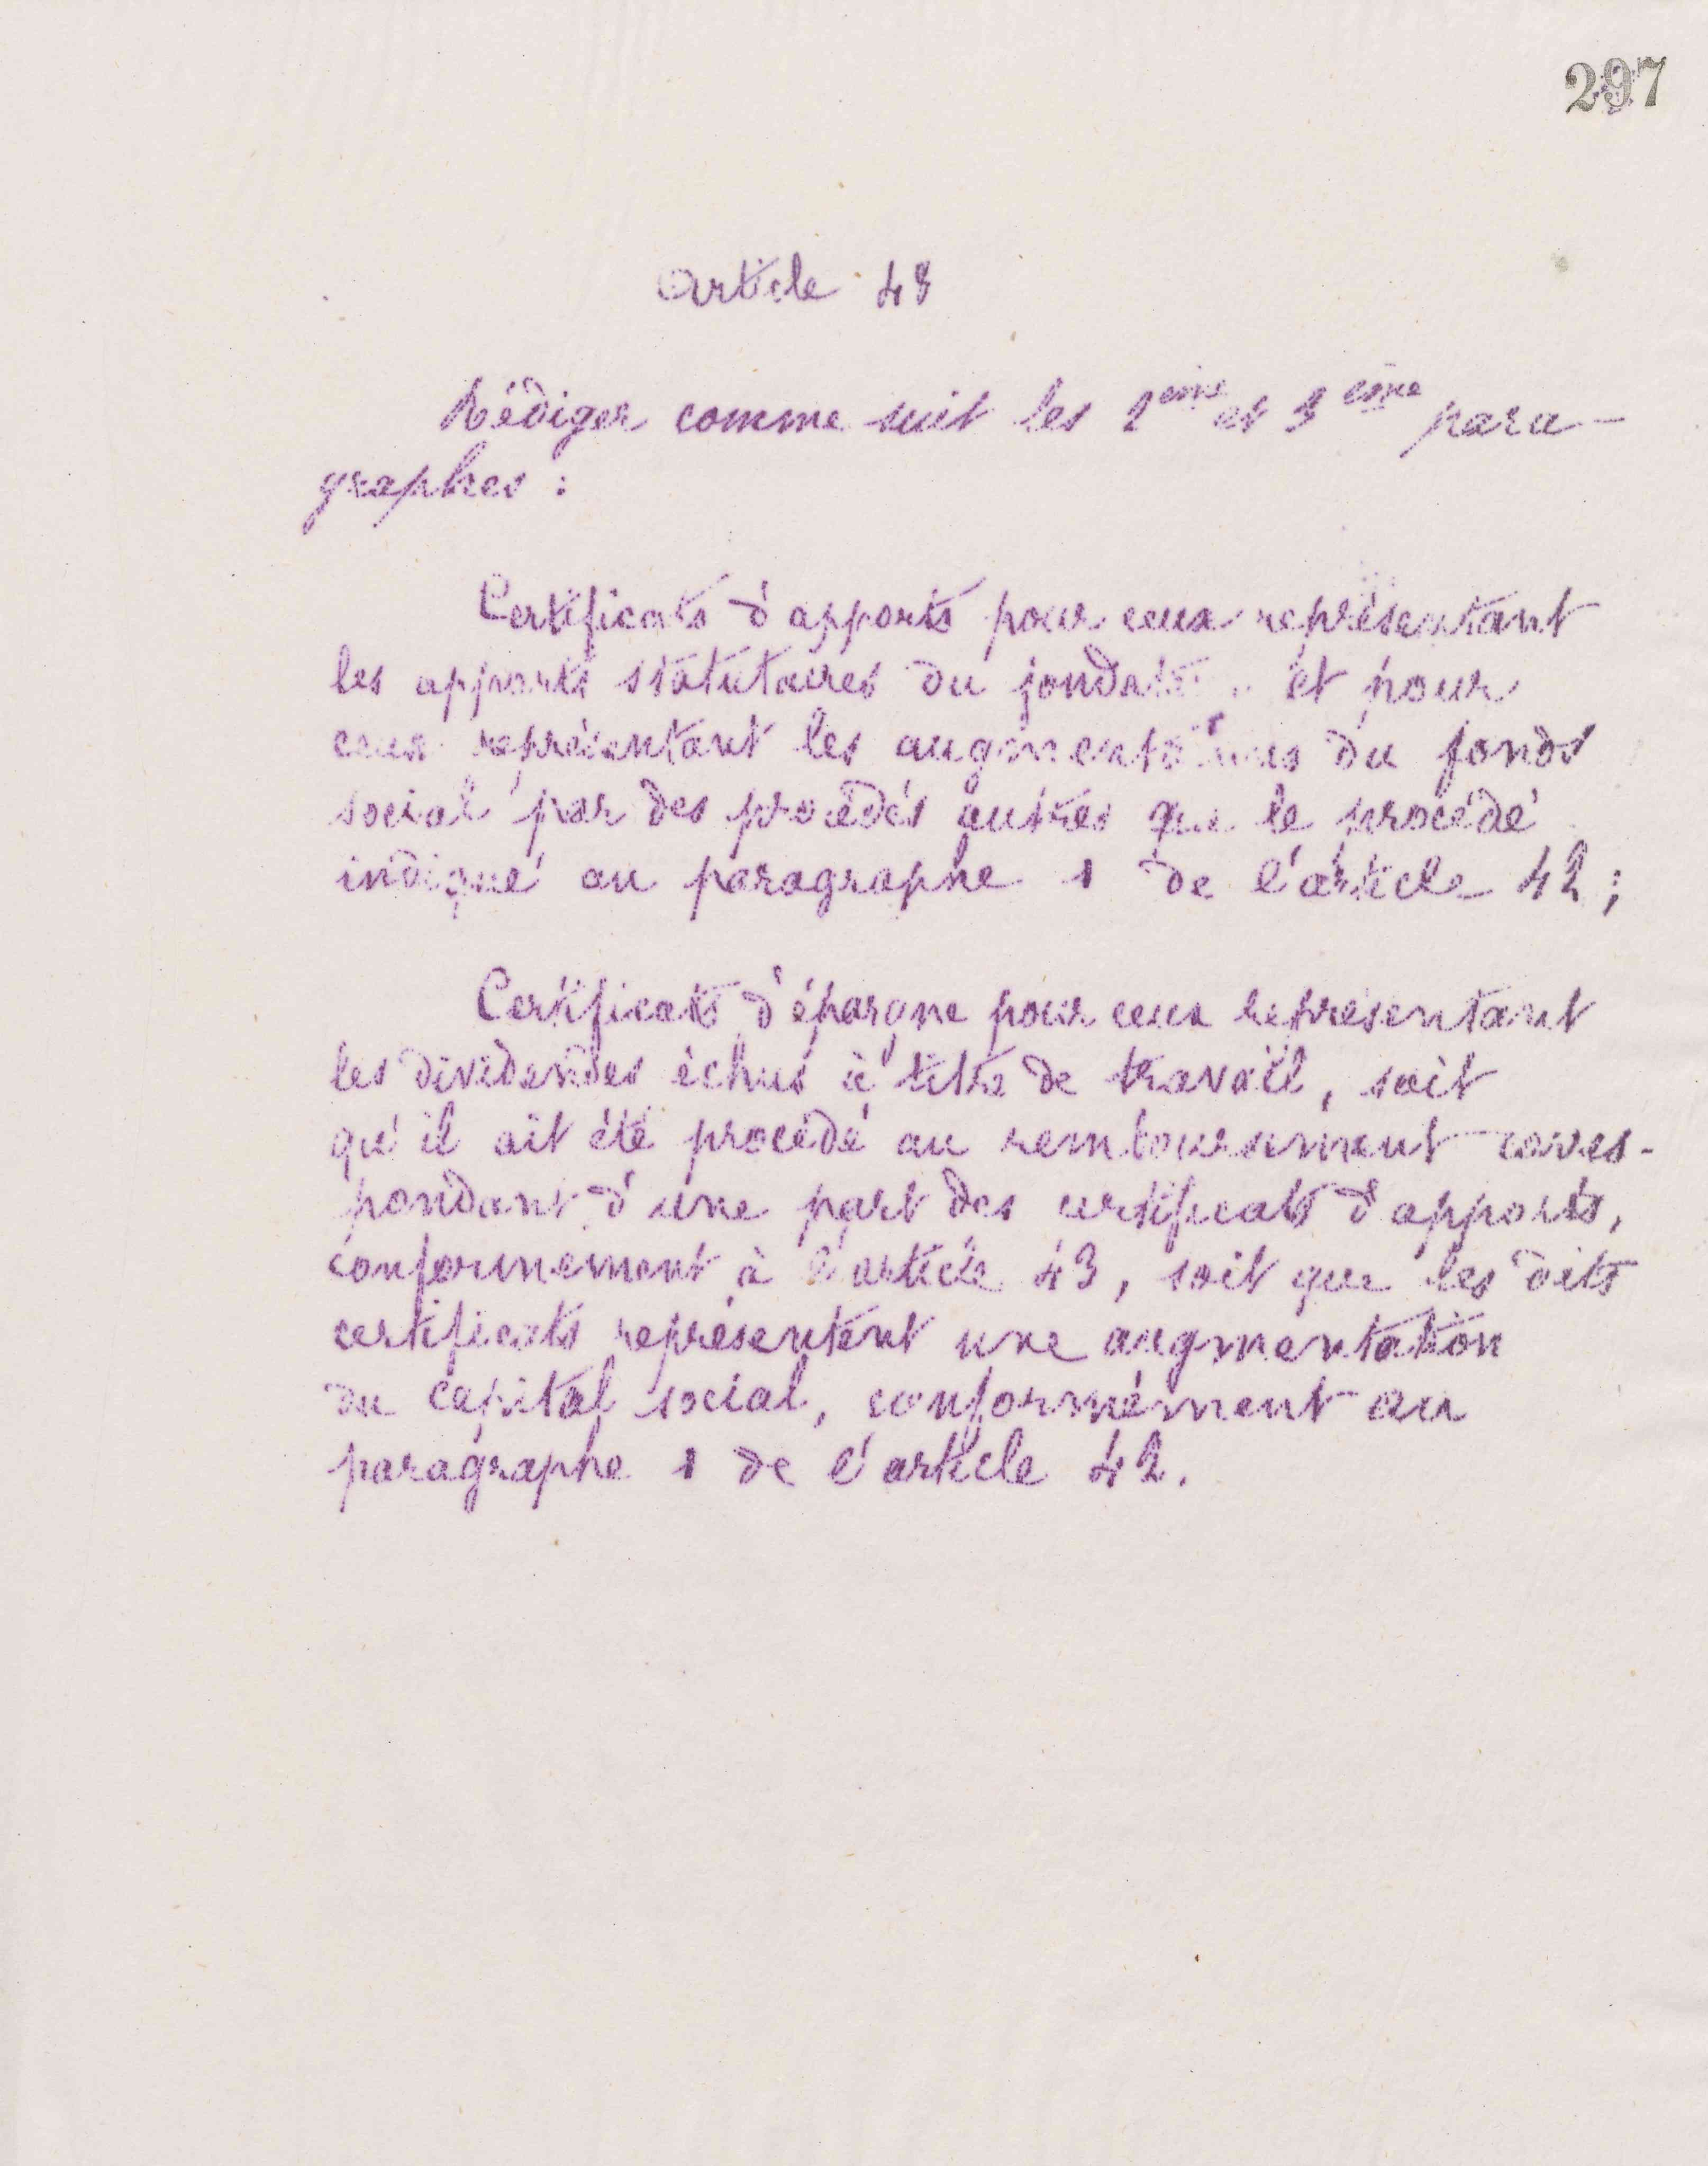 297
Article 48
Rédiger comme suit les 2eme et 3eme para-
graphes :
Certificats d'apports pour ceux représentant
les apports statutaires du et pour
ceux représentant les augmentations du fonds
social par des procédés autres que le procédé
indiqué au paragraphe 1 de l'article 42 ;
Certificats d'épargne pour ceux représentant
les dividendes échus à titre de travail, soit
qu'il ait été procédé au remboursement corres-
pondant d'une part des certificats d'apports,
conformément à l'article 43, soit que les dits
certificats représentent une augmentation
du capital social, conformément au
paragraphe 1 de l'article 42.